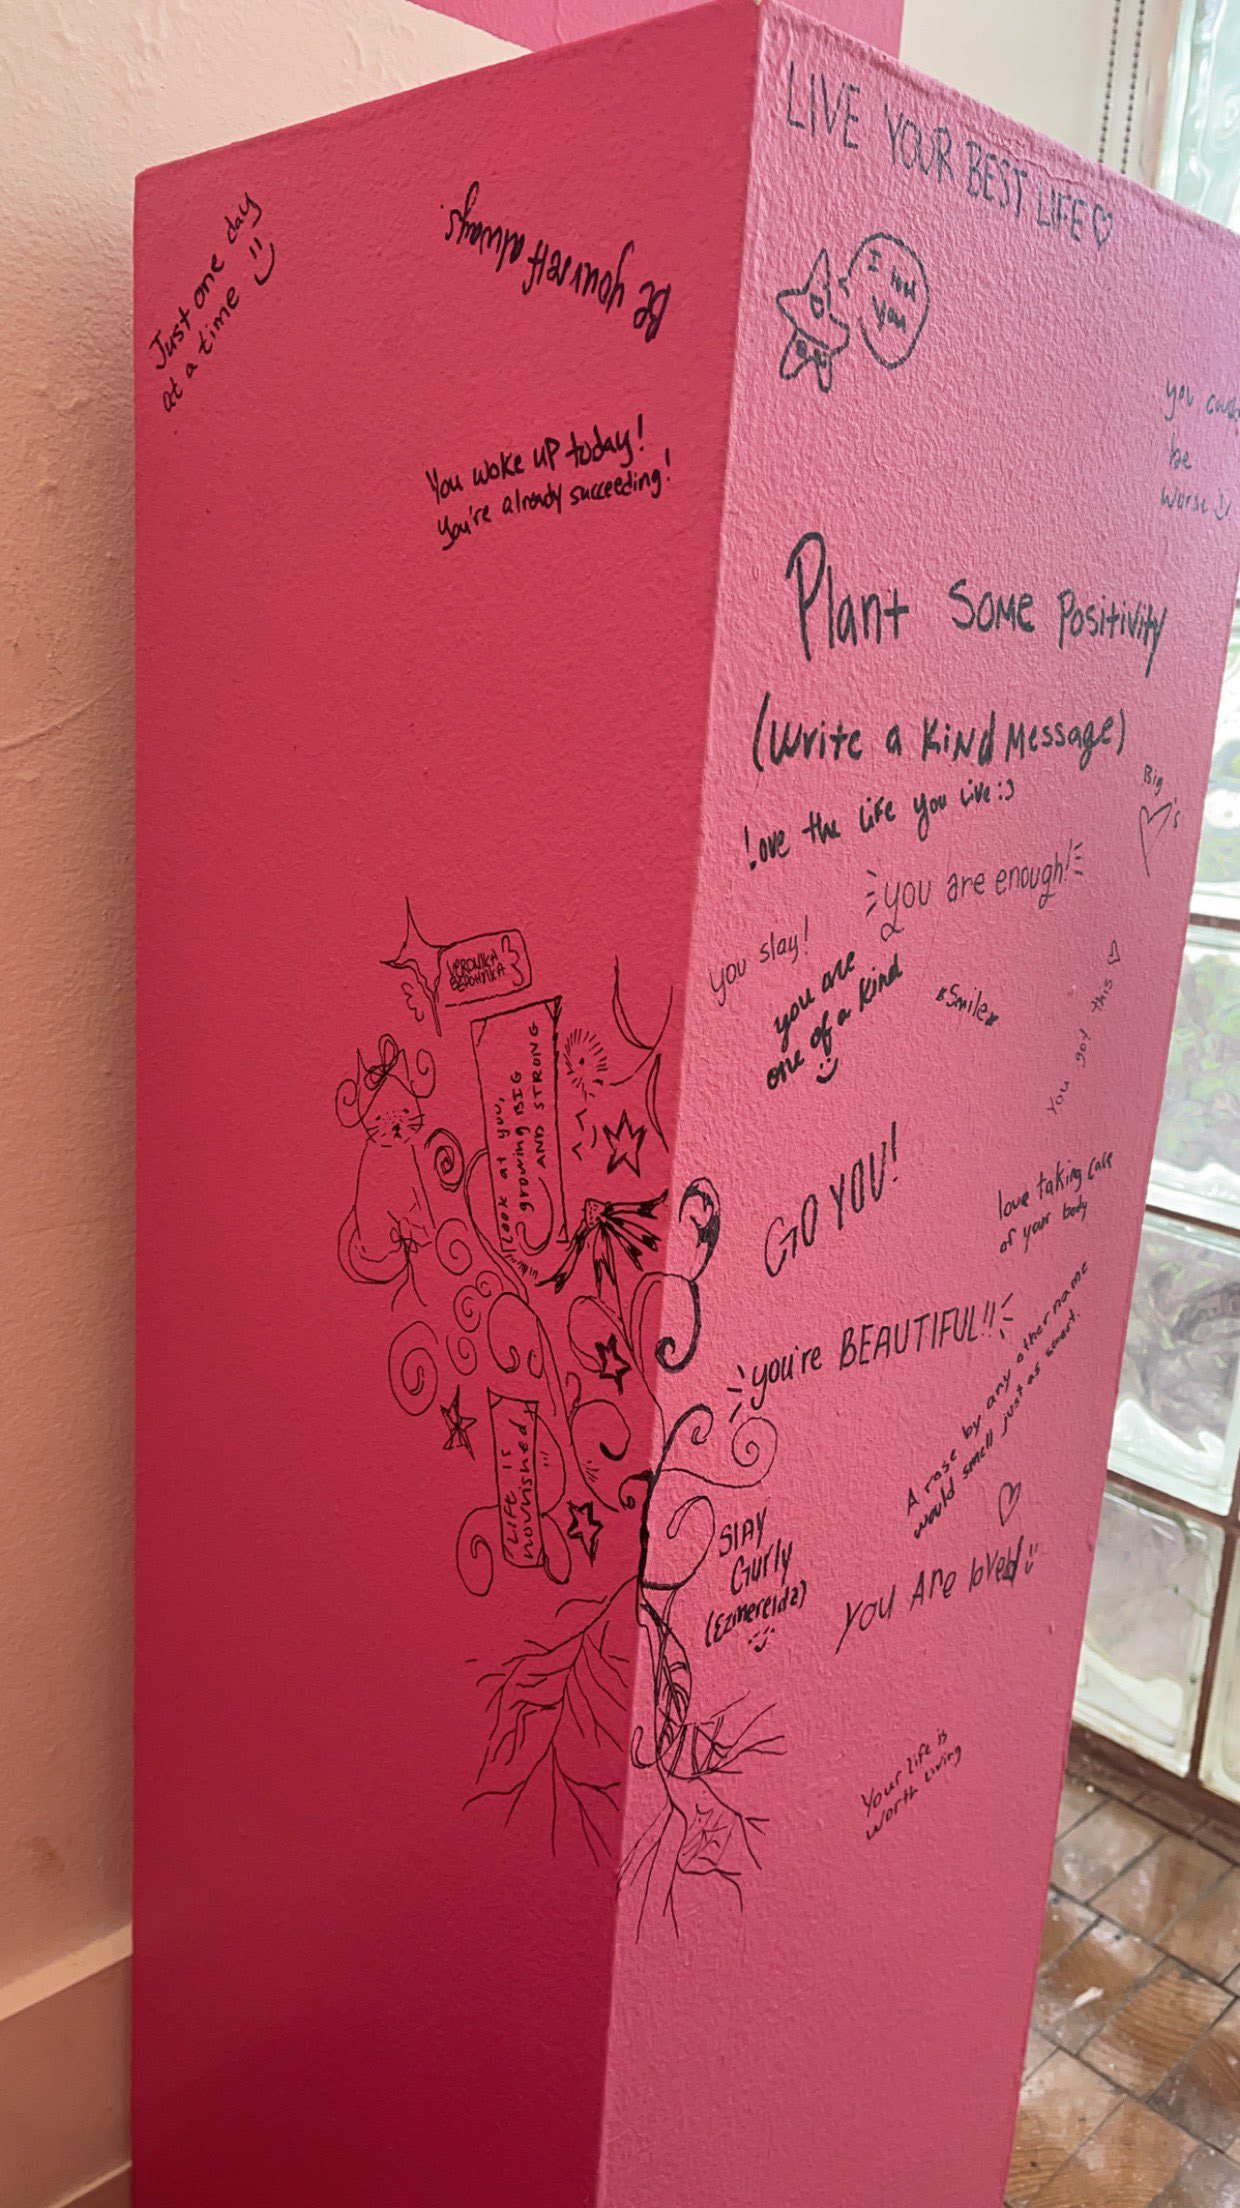 Just one day
at a time
Be yourself always.
You woke up today!
You're already succeeding!
VERONIKA
look at you,
growing BIG
AND STRONG
Life is
nourished
LIVE YOUR BEST LIFE♡
I
You
be
worse
Plant Some Positivity
(Write a Kind Message)
Love the life you live :)
Big
you are enough!
you slay!
you are
one of a kind
Smile
You got this
GO YOU!
love taking care
of your body
you're BEAUTIFUL!!
A rose by any other name
would smell just as sweet.
Slay
Gurly
You Are loved
Your life is
worth living